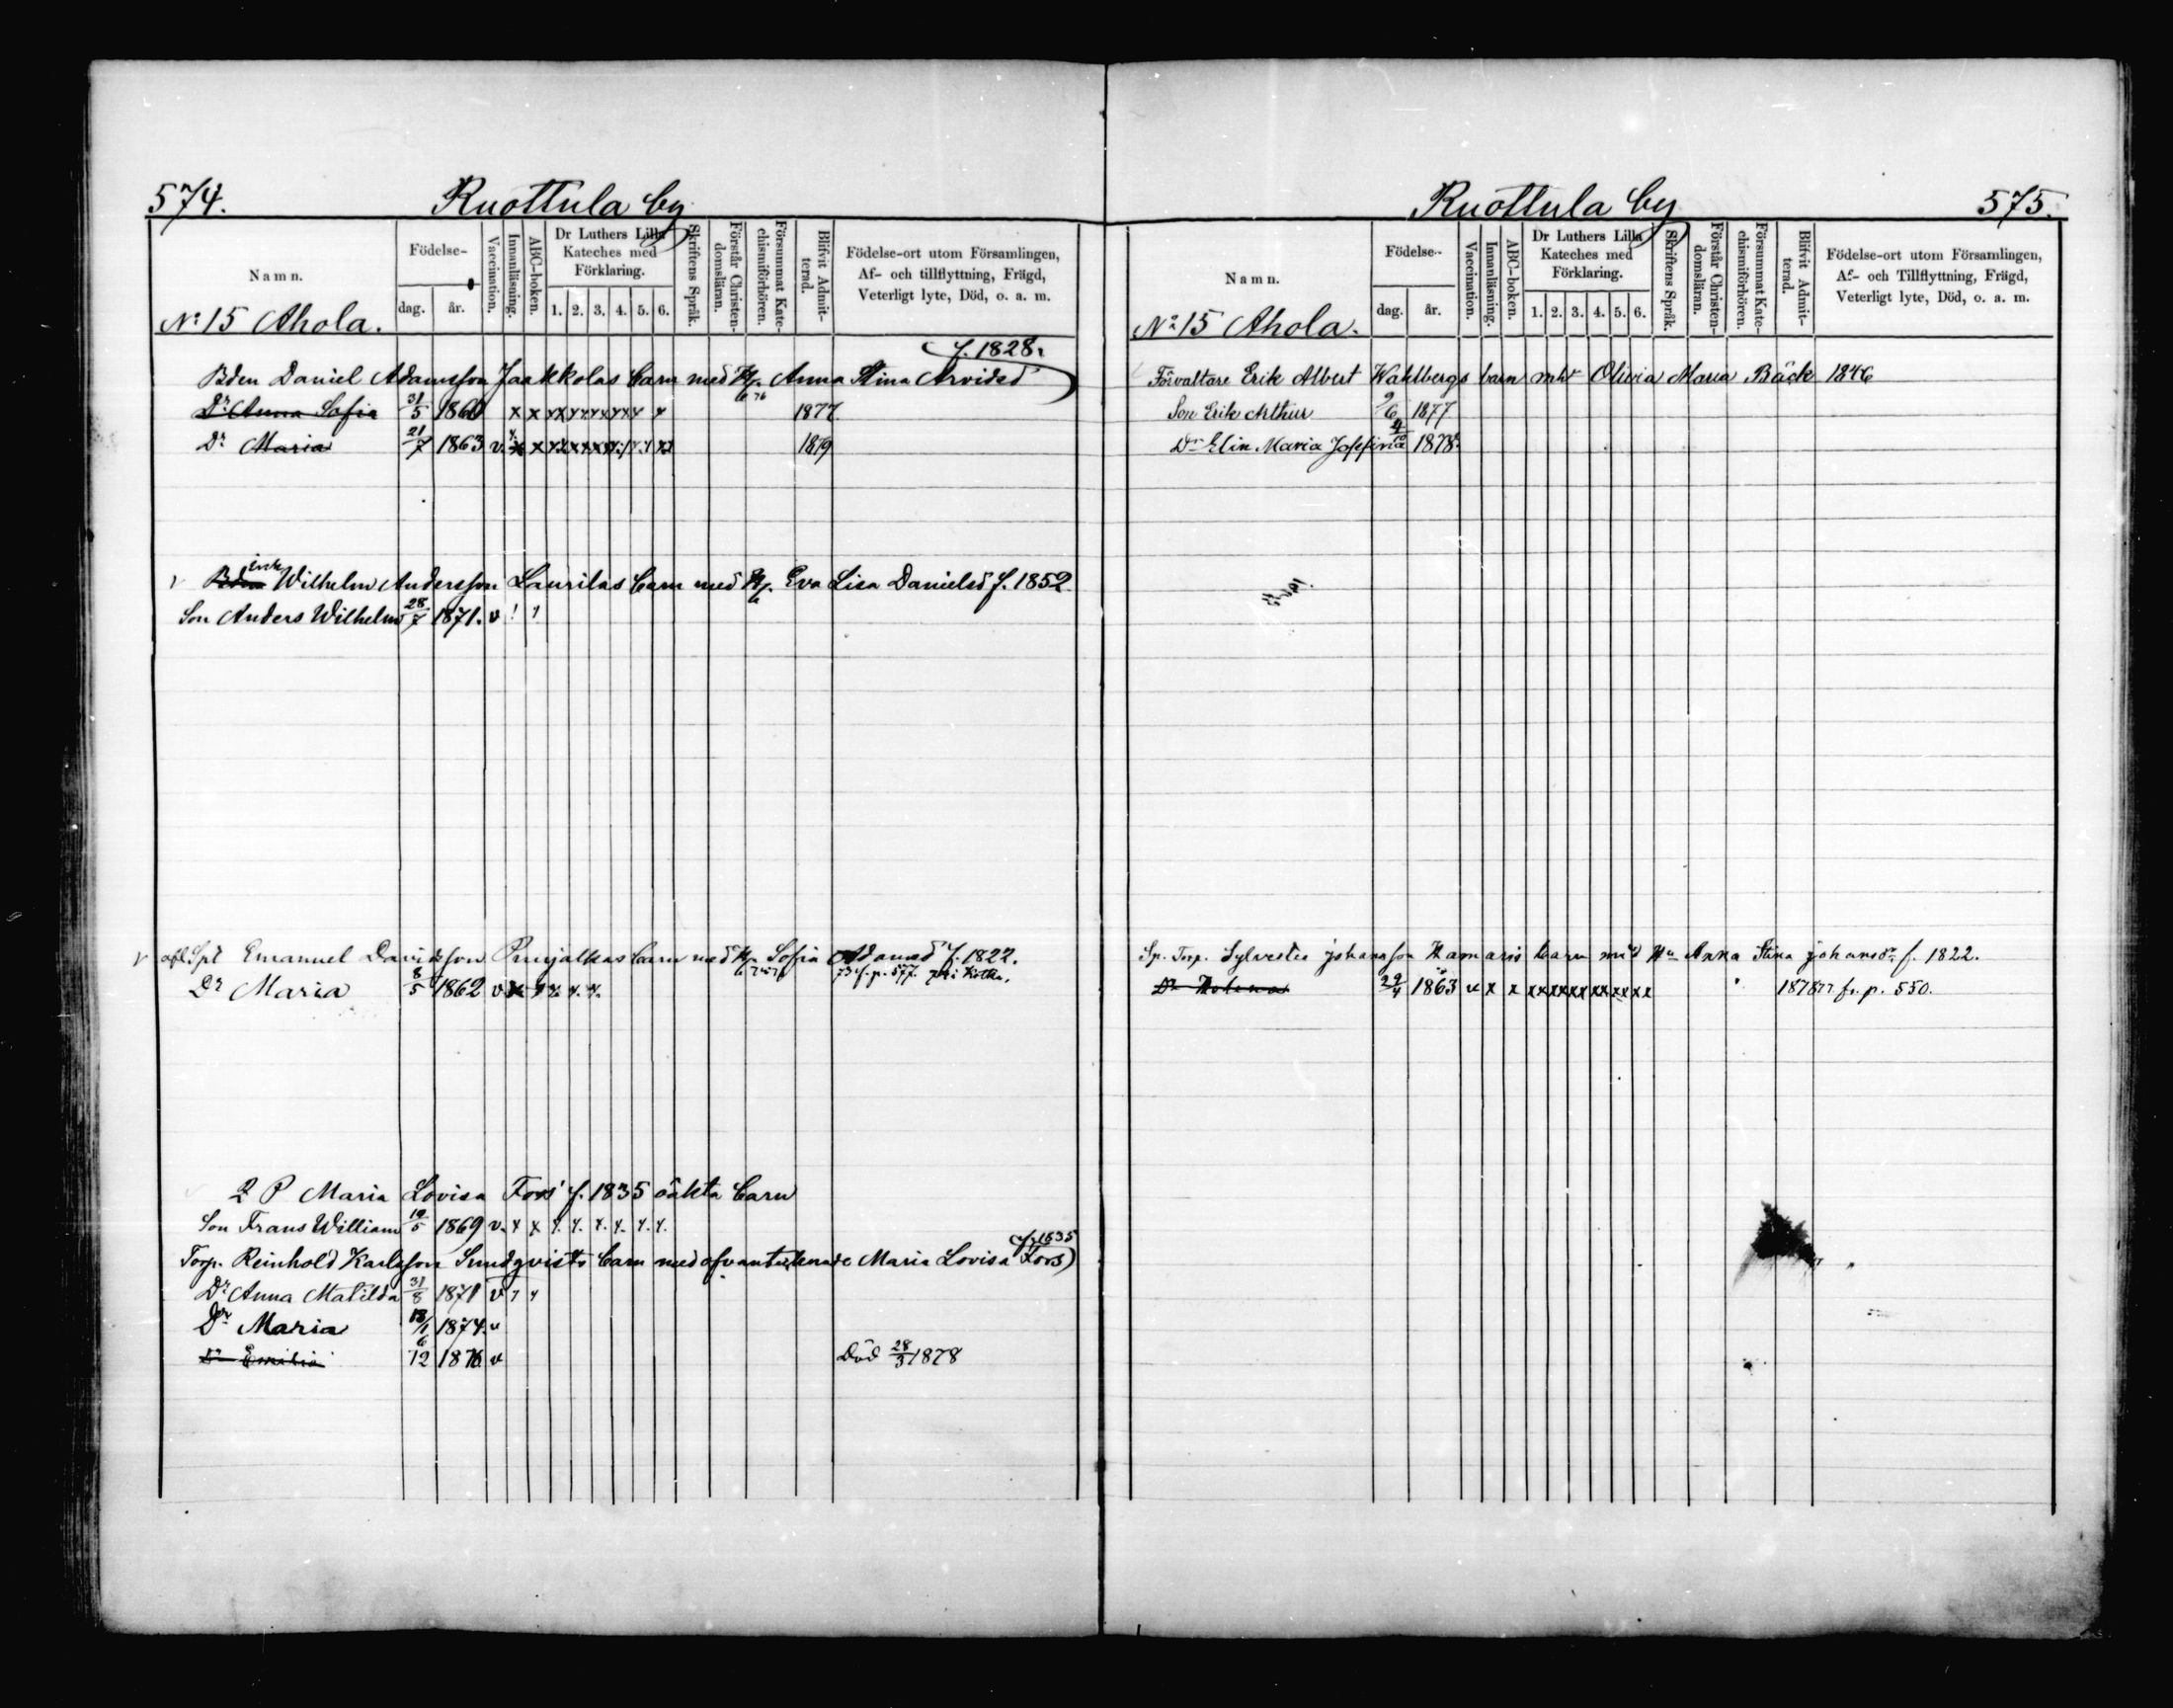 574.
Ruottula by
Namn.
Födelse-
dag.
år.
Vaccination.
Innanläsning.
ABC-boken.
Dr Luthers Lilla
Kateches med
Förklaring.
1. 2. 3. 4. 5. 6.
Skriftens Språk.
Förstår Christen-
domsläran.
Försummat Kate-
chismiförhören.
Blifvit Admit-
terad.
Födelse-ort utom Församlingen,
Af- och tillflyttning, Frägd,
Veterligt lyte, Död, o. a. m.
No 15 Ahola.
f. 1828.
Bden Daniel Adamsson Jaakkolas barn med Hu. Anna Stina Arvidsd
Dr Anna Sofia 31/5 1860 x x xx xx xx xx x x 1877
Dr Maria 21/7 1863 v. x x 1879
enk
v Bden Wilhelm Andersson Laurilas barn med Hu. Eva Lisa Danielsd f. 1852.
Son Anders Wilhelm 28/7 1871. v ! 1
v afl. Spt Emanuel Davidsson barn med Hu Sofia Adamsd f. 1822.
73 f. p. 577.
Dr Maria 8/5 1862 v x
Maria Lovisa Fors f. 1835 oäkta barn
Son Frans William 19/5 1869 v. x x x. x. x. x. x. x.
f. 1835
Torp. Reinhold Karlsson Sundqvists barn med ofvantecknade Maria Lovisa Fors)
Dr Anna Matilda 31/8 1871 v
Dr Maria 18/1 1874. v
Dr Emilia 6/12 1876 v Död 28/3 1878
Ruottula by
575.
Namn.
Födelse-
dag.
år.
Vaccination.
Innanläsning.
ABC-boken.
Dr Luthers Lilla
Kateches med
Förklaring.
1. 2. 3. 4. 5. 6.
Skriftens Språk.
Förstår Christen-
domsläran.
Försummat Kate-
chismiförhören.
Blifvit Admit-
terad.
Födelse-ort utom Församlingen,
Af- och Tillflyttning, Frägd,
Veterligt lyte, Död, o. a. m.
No 15 Ahola.
Förvaltare Erik Albert Wahlbergs barn Olivia Maria Bäck 1846
Son Erik Arthur 9/6 1877
Dr Elin Maria Josefina 4/12 1878.
Sp. Torp. Sylvester Johansson Hamaris barn med Hu Anna Stina Johansdr f. 1822.
Dr 29/4 1863 v x x xx xx xx xx xx xx 1878 77 fr. p. 550.